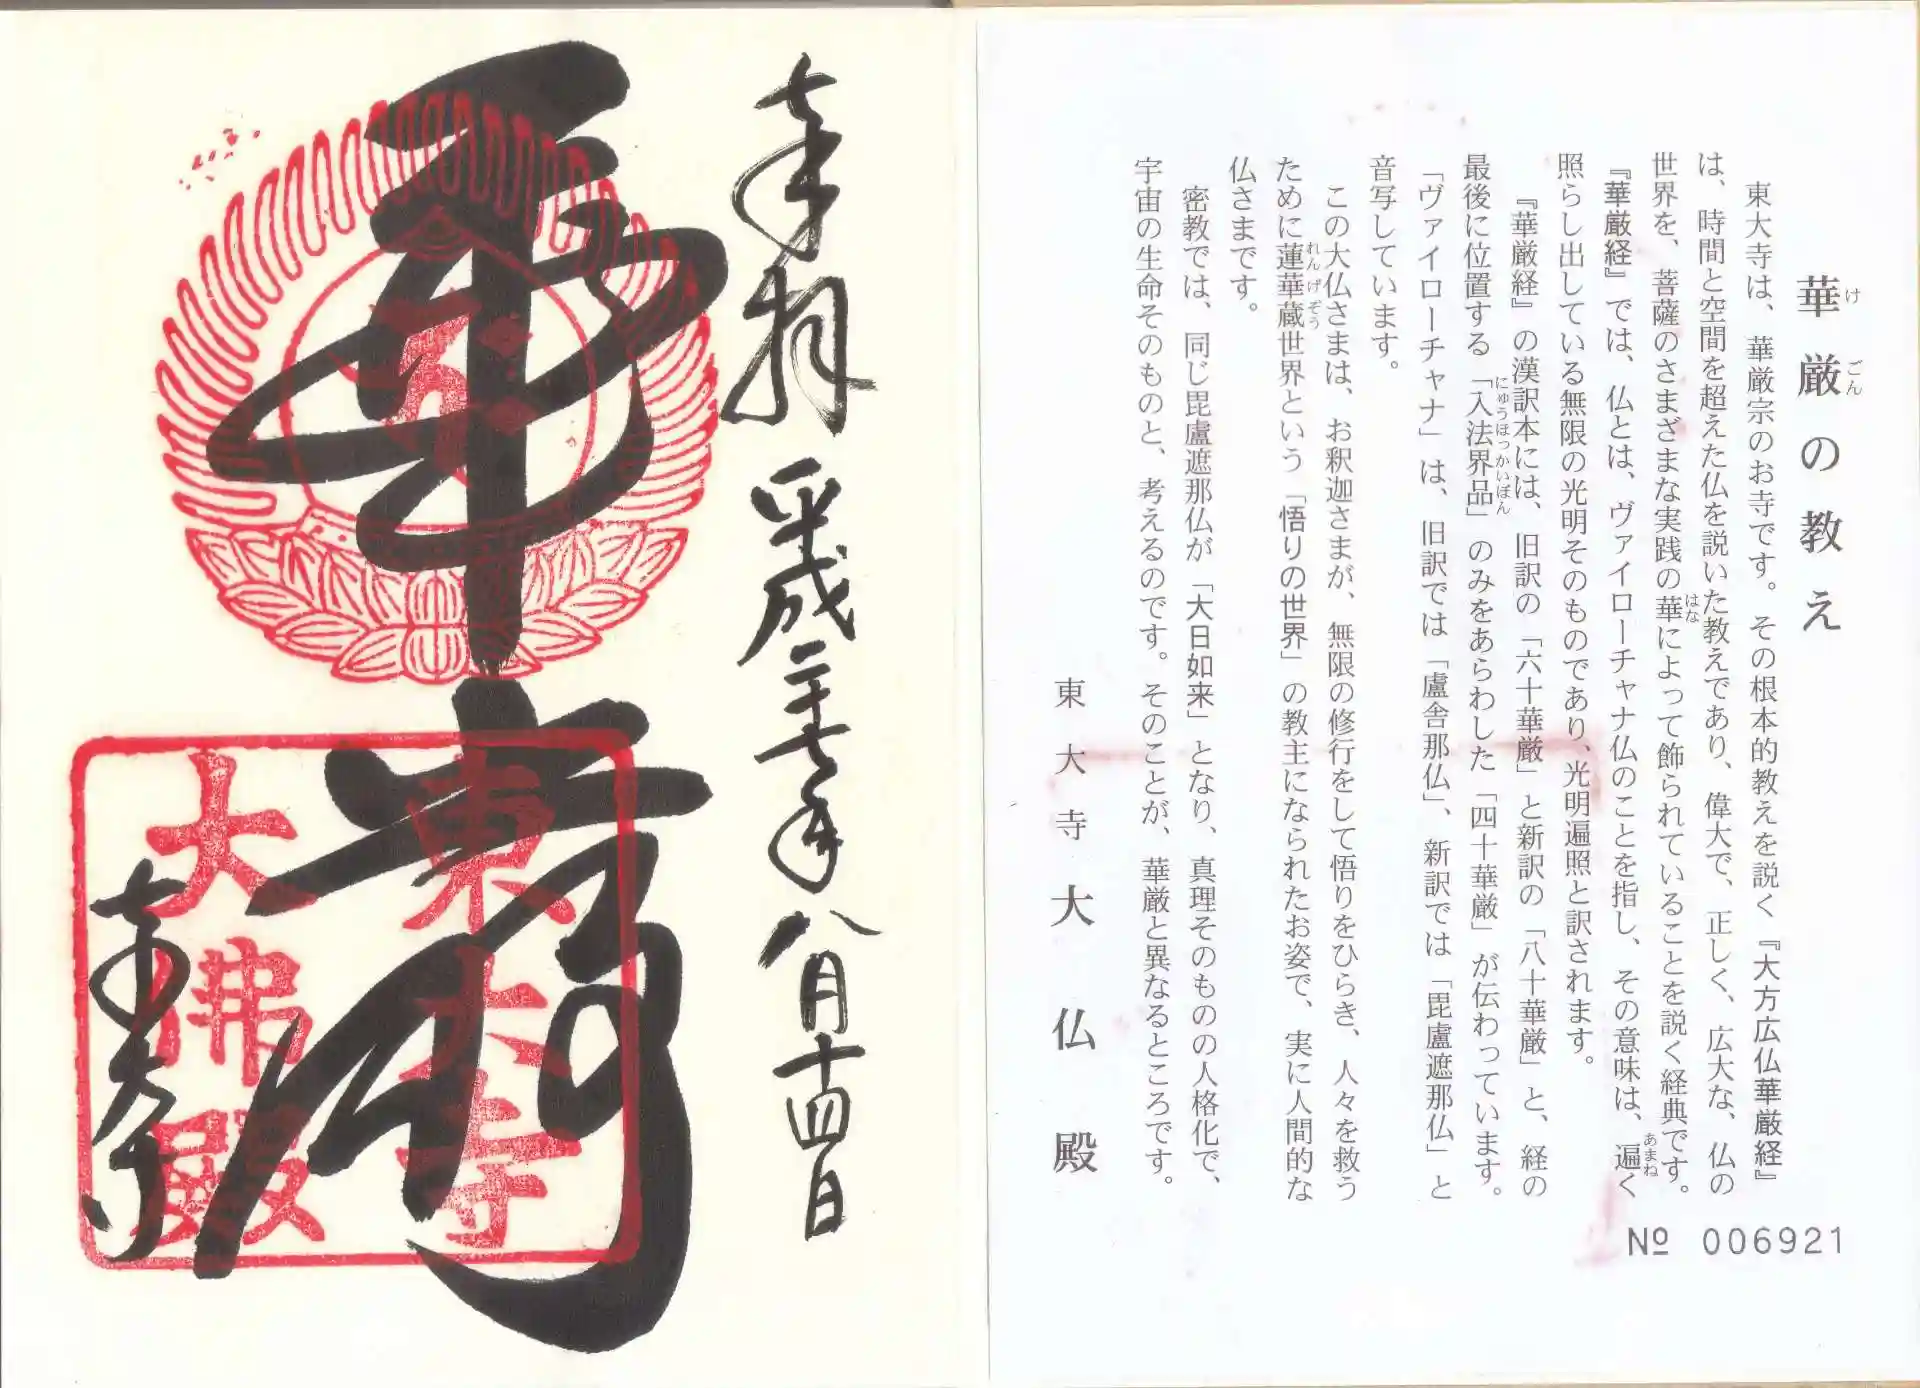 華厳の教え
けごん
東大寺は、華厳宗のお寺です。その根本的教えを説く『大方広仏華厳経』
は、時間と空間を超えた仏を説いた教えであり、偉大で、正しく、広大な、仏の
世界を、菩薩のさまざまな実践の華によって飾られていることを説く経典です。
はな
『華厳経』では、仏とは、ヴァイローチャナ仏のことを指し、その意味は、遍く
あまね
照らし出している無限の光明そのものであり、光明遍照と訳されます。
『華厳経』の漢訳本には、旧訳の「六十華厳」と新訳の「八十華厳」と、経の
最後に位置する「入法界品」のみをあらわした「四十華厳」が伝わっています。
にゅうほっかいぼん
「ヴァイローチャナ」は、旧訳では「盧舎那仏」、新訳では「毘盧遮那仏」と
音写しています。
この大仏さまは、お釈迦さまが、無限の修行をして悟りをひらき、人々を救う
ために蓮華蔵世界という「悟りの世界」の教主になられたお姿で、実に人間的な
れんげぞう
仏さまです。
密教では、同じ毘盧遮那仏が「大日如来」となり、真理そのものの人格化で、
宇宙の生命そのものと、考えるのです。そのことが、華厳と異なるところです。
東大寺大仏殿
№ 006921
奉拝 平成二十七年八月十四日
華厳
東大寺
大佛殿
東大寺